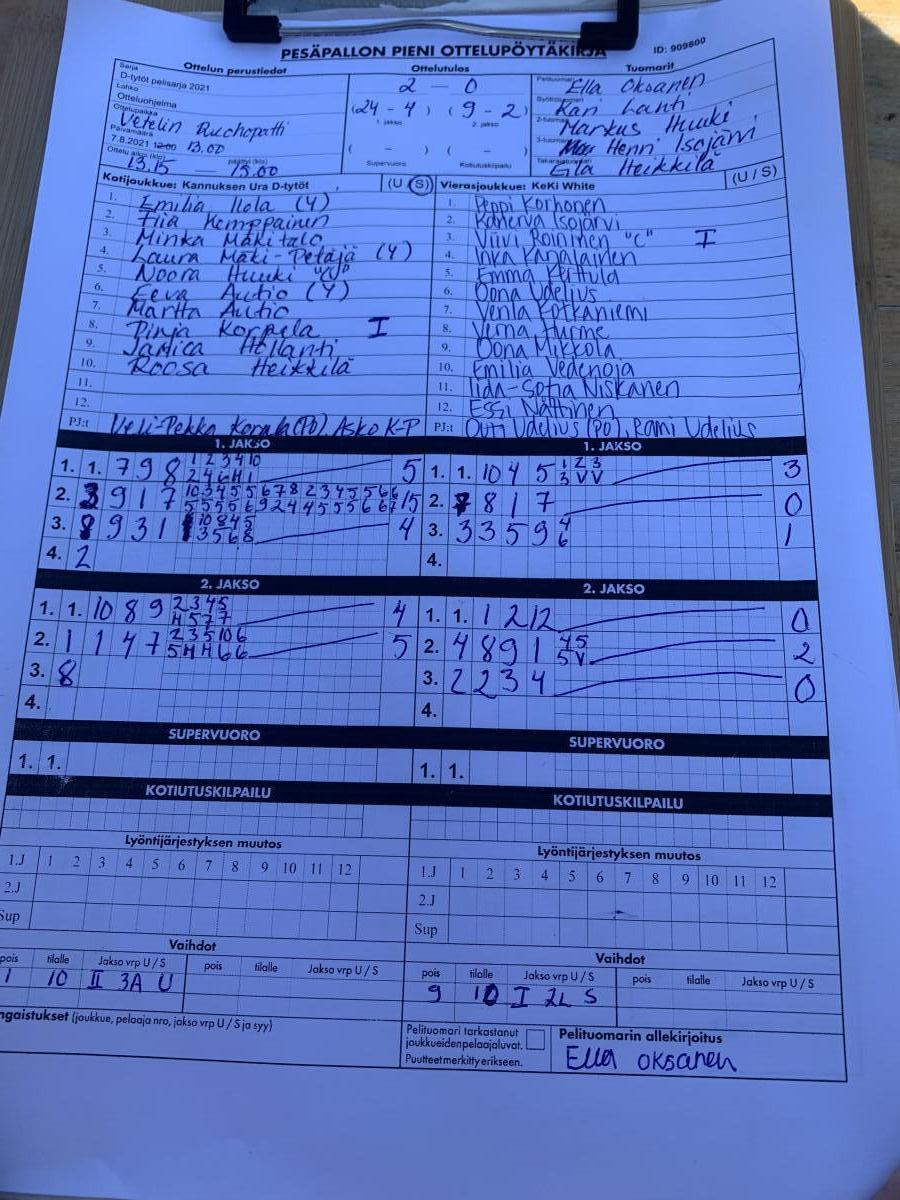 PESÄPALLON PIENI OTTELUPÖYTÄKIRJA
ID: 909800
Ottelun perustiedot
Sarja
D-tytöt pelisarja 2021
Lohko
Otteluohjelma
Ottelupaikka
Vetelin
Päivämäärä
7.8.2021 12:00 13.00
Ottelu alkoi (klo) päättyi (klo)
13.15 — 15.00
Ottelutulos
2 — 0
(24 - 4) (9 - 2)
1. jakso 2. jakso
( - ) ( - )
Supervuoro Kotiutuskilpailu
Tuomarit
Pelituomari Ella Oksanen
Syöttötuomari Kari Lanti
2-tuomari Markus Huuki
3-tuomari Henri Isojärvi
Takarajatuomari Eila Heikkilä
Kotijoukkue: Kannuksen Ura D-tytöt (U S)
1. Emilia Ilola (Y)
2. Tiia Kemppainen
3. Minka Mäkitalo
4. Laura Mäki-Petäjä (Y)
5. Noora Huuki "C"
6. Eeva Autio (Y)
7. Martta Autio
8. Pinja Korpela I
9. Jamica Hellanti
10. Roosa Heikkilä
11.
12.
PJ:t Veli-Pekka (PO), Asko K-P
Vierasjoukkue: KeKi White (U / S)
1. Peppi Korhonen
2. Kanerva Isojärvi
3. Viivi Roininen "C" I
4. Inka Kanalainen
5. Emma Kettula
6. Oona Udelius
7. Venla Kotkaniemi
8. Verna Hurme
9. Oona Mikkola
10. Emilia Vedenoja
11. Iida-Sofia Niskanen
12. Essi Nättinen
PJ:t Outi Udelius (PO), Rami Udelius
1. JAKSO
1. 1. 7 9 8 1 2 3 4 10 5
2 4 6 H 1
2. 3 9 1 7 10 3 4 5 5 6 7 8 2 3 4 5 5 6 6 15
5 5 5 6 6 9 2 4 4 5 5 5 6 6 7
3. 8 9 3 1 10 8 4 5 4
3 5 6 8
4. 2
1. JAKSO
1. 1. 10 4 5 1 2 3 3
3 V V
2. 7 8 1 7 0
3. 3 3 5 9 4 1
6
4.
2. JAKSO
1. 1. 10 8 9 2 3 4 5 4
H 5 7 7
2. 1 1 4 7 2 3 5 10 6 5
5 H H 6 6
3. 8
4.
2. JAKSO
1. 1. 1 2 12 0
2. 4 8 9 1 4 5 2
5 V
3. 2 2 3 4 0
4.
SUPERVUORO
1. 1.
SUPERVUORO
1. 1.
KOTIUTUSKILPAILU
KOTIUTUSKILPAILU
Lyöntijärjestyksen muutos
1.J 1 2 3 4 5 6 7 8 9 10 11 12
2.J
Sup
Lyöntijärjestyksen muutos
1.J 1 2 3 4 5 6 7 8 9 10 11 12
2.J
Sup
Vaihdot
pois tilalle Jakso vrp U / S pois tilalle Jakso vrp U / S
1 10 II 3A U
Vaihdot
pois tilalle Jakso vrp U / S pois tilalle Jakso vrp U / S
9 10 I 2L S
ngaistukset (joukkue, pelaaja nro, jakso vrp U / S ja syy)
Pelituomari tarkastanut
joukkueiden pelaajaluvat.
Puutteet merkitty erikseen.
Pelituomarin allekirjoitus
Ella Oksanen